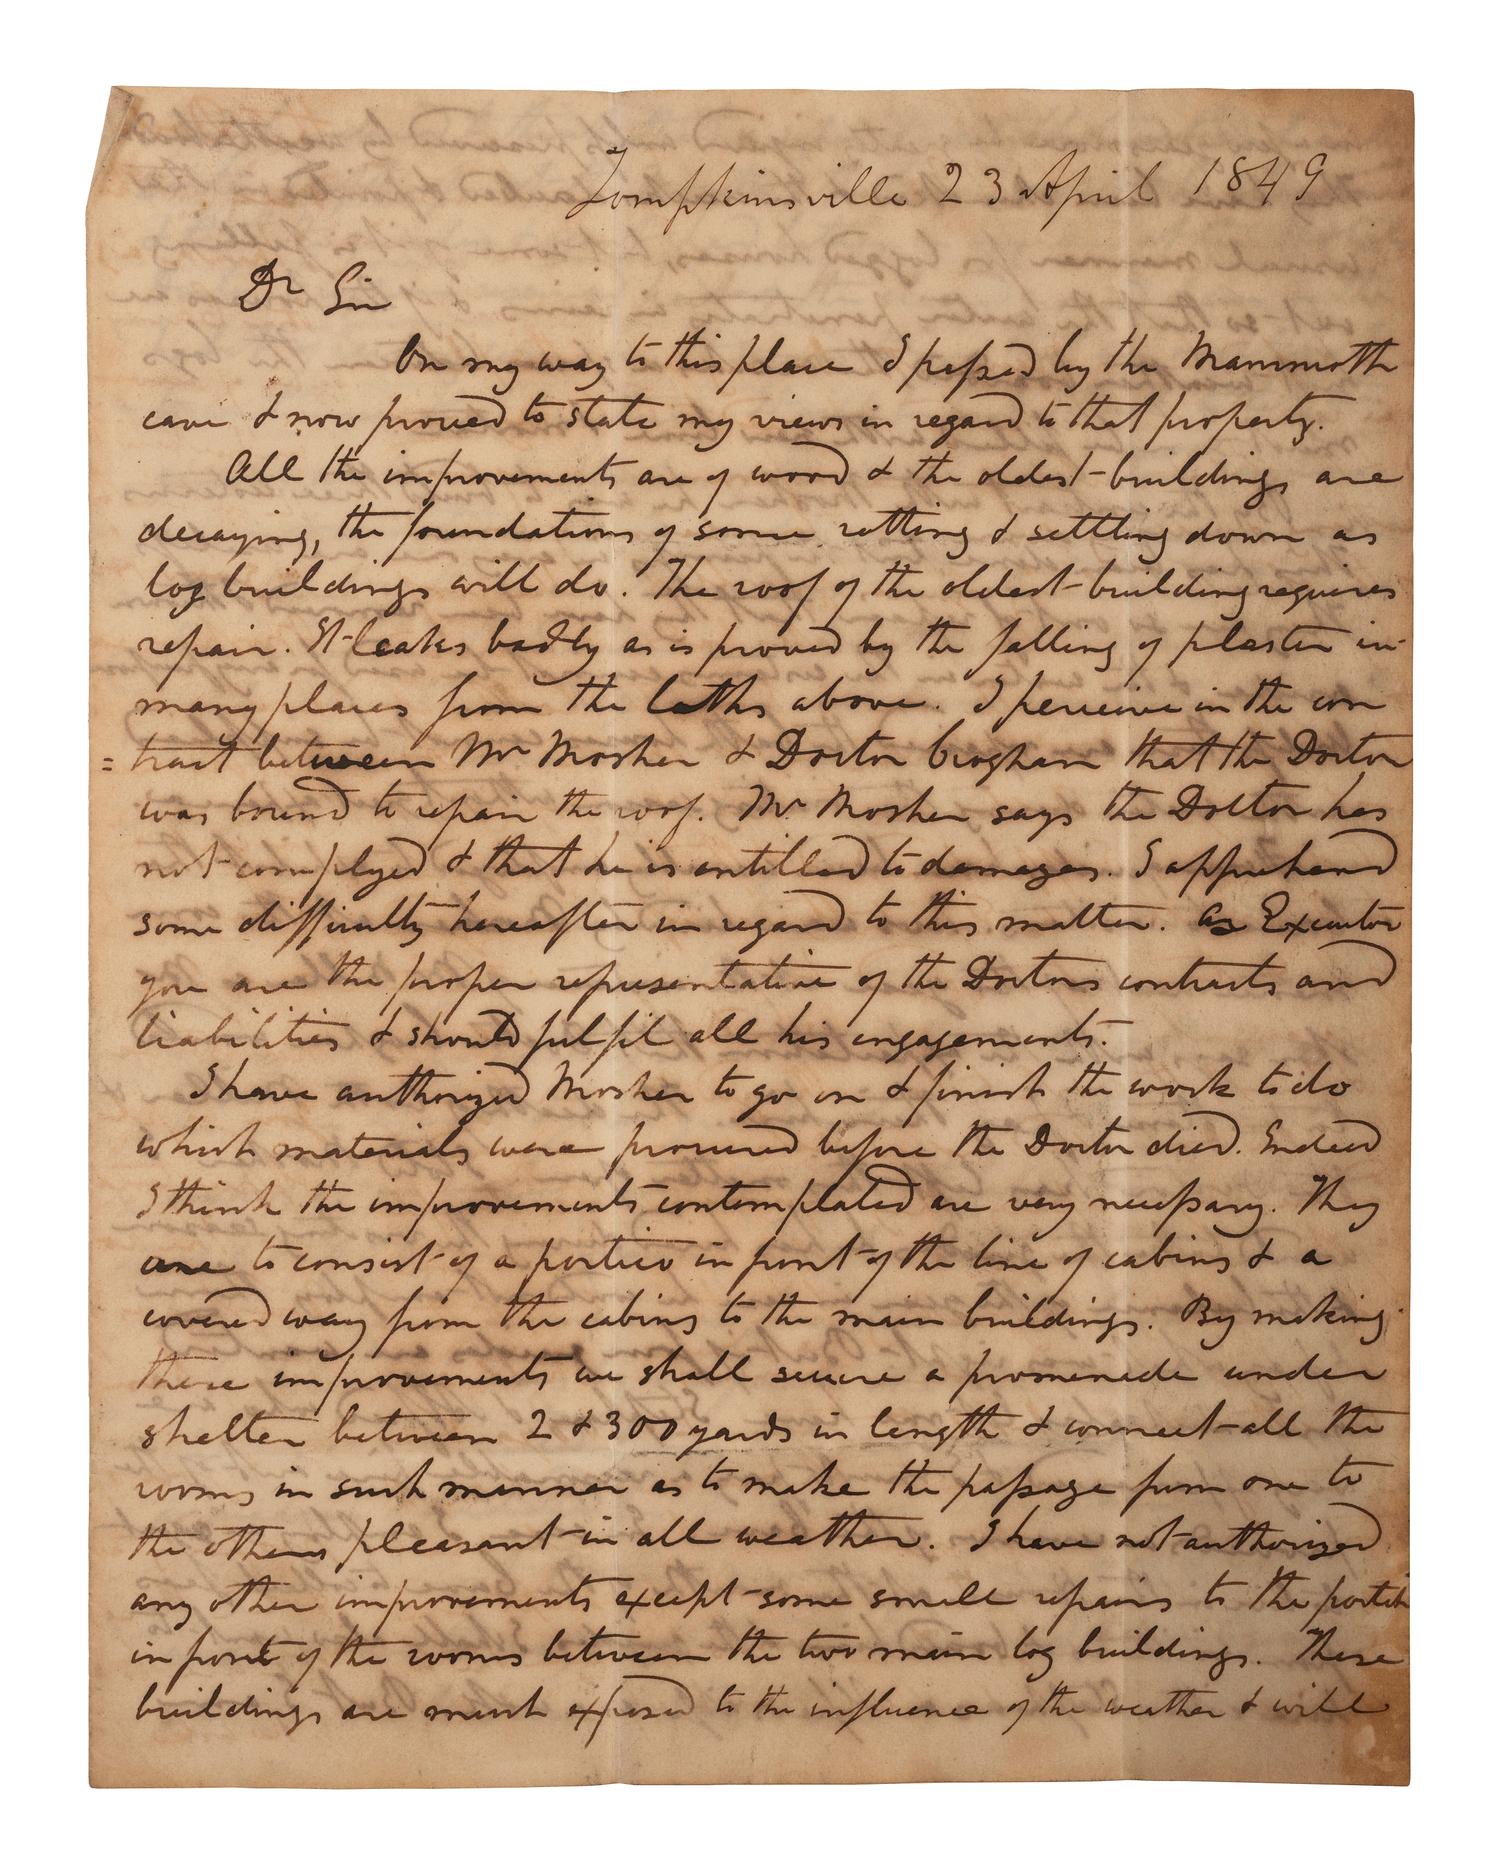 Tompkinsville 23 April 1849
Dr Sir
On my way to this place I passed by the Mammoth
cave & now proceed to state my views in regard to that property.
All the improvements are of wood & the oldest buildings are
decaying, the foundations of some rotting & settling down as
log buildings will do. The roof of the oldest building requires
repair. It leaks badly as is proved by the falling of plaster in
many places from the laths above. I perceive in the con
= tract between Mr Mosher & Doctor Croghan that the Doctor
was bound to repair the roof. Mr Mosher says the Doctor has
not complyed & that he is entitled to damages. I apprehend
some difficulty hereafter in regard to this matter. As Executor
you are the proper representative of the Doctors contracts and
liabilities & should fulfil all his engagements.
I have authorized Mosher to go on & finish the work to do
which materials were procured before the Doctor died. Indeed
I think the improvements contemplated are very necessary. They
are to consist of a portico in front of the line of cabins & a
covered way from the cabins to the main buildings. By making
these improvements we shall secure a promenade under
shelter between 2 & 300 yards in length & connect all the
rooms in such manner as to make the passage from one to
the others pleasant in all weather. I have not authorized
any other improvements except some small repairs to the portic
in front of the rooms between the two main log buildings. These
buildings are much exposed to the influence of the weather & will